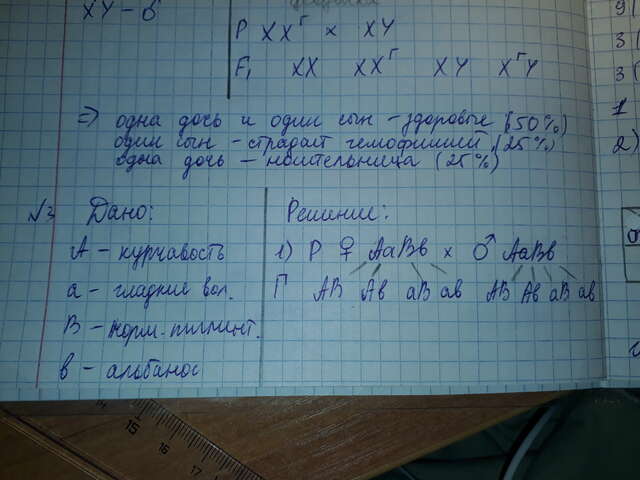 XY – б
P XXᴦ × XY
F₁ XX XXᴦ XY XᴦY
⇒ одна дочь и один сын – здоровые (50%)
один сын – страдает гемофилией (25%)
одна дочь – носительница (25%)
№3 Дано: Решение:
А – курчавость 1) P ♀ АаВв × ♂ АаВв
а – гладкие вол. Г АВ Ав аВ ав АВ Ав аВ ав
В – норм. пигмент.
в – альбинос
9(
3(
3(
1
2)
15 16 17